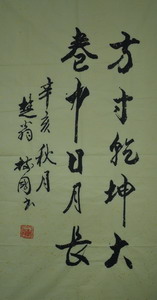 方寸乾坤大
卷中日月長
辛亥秋月
楚翁 樹國书